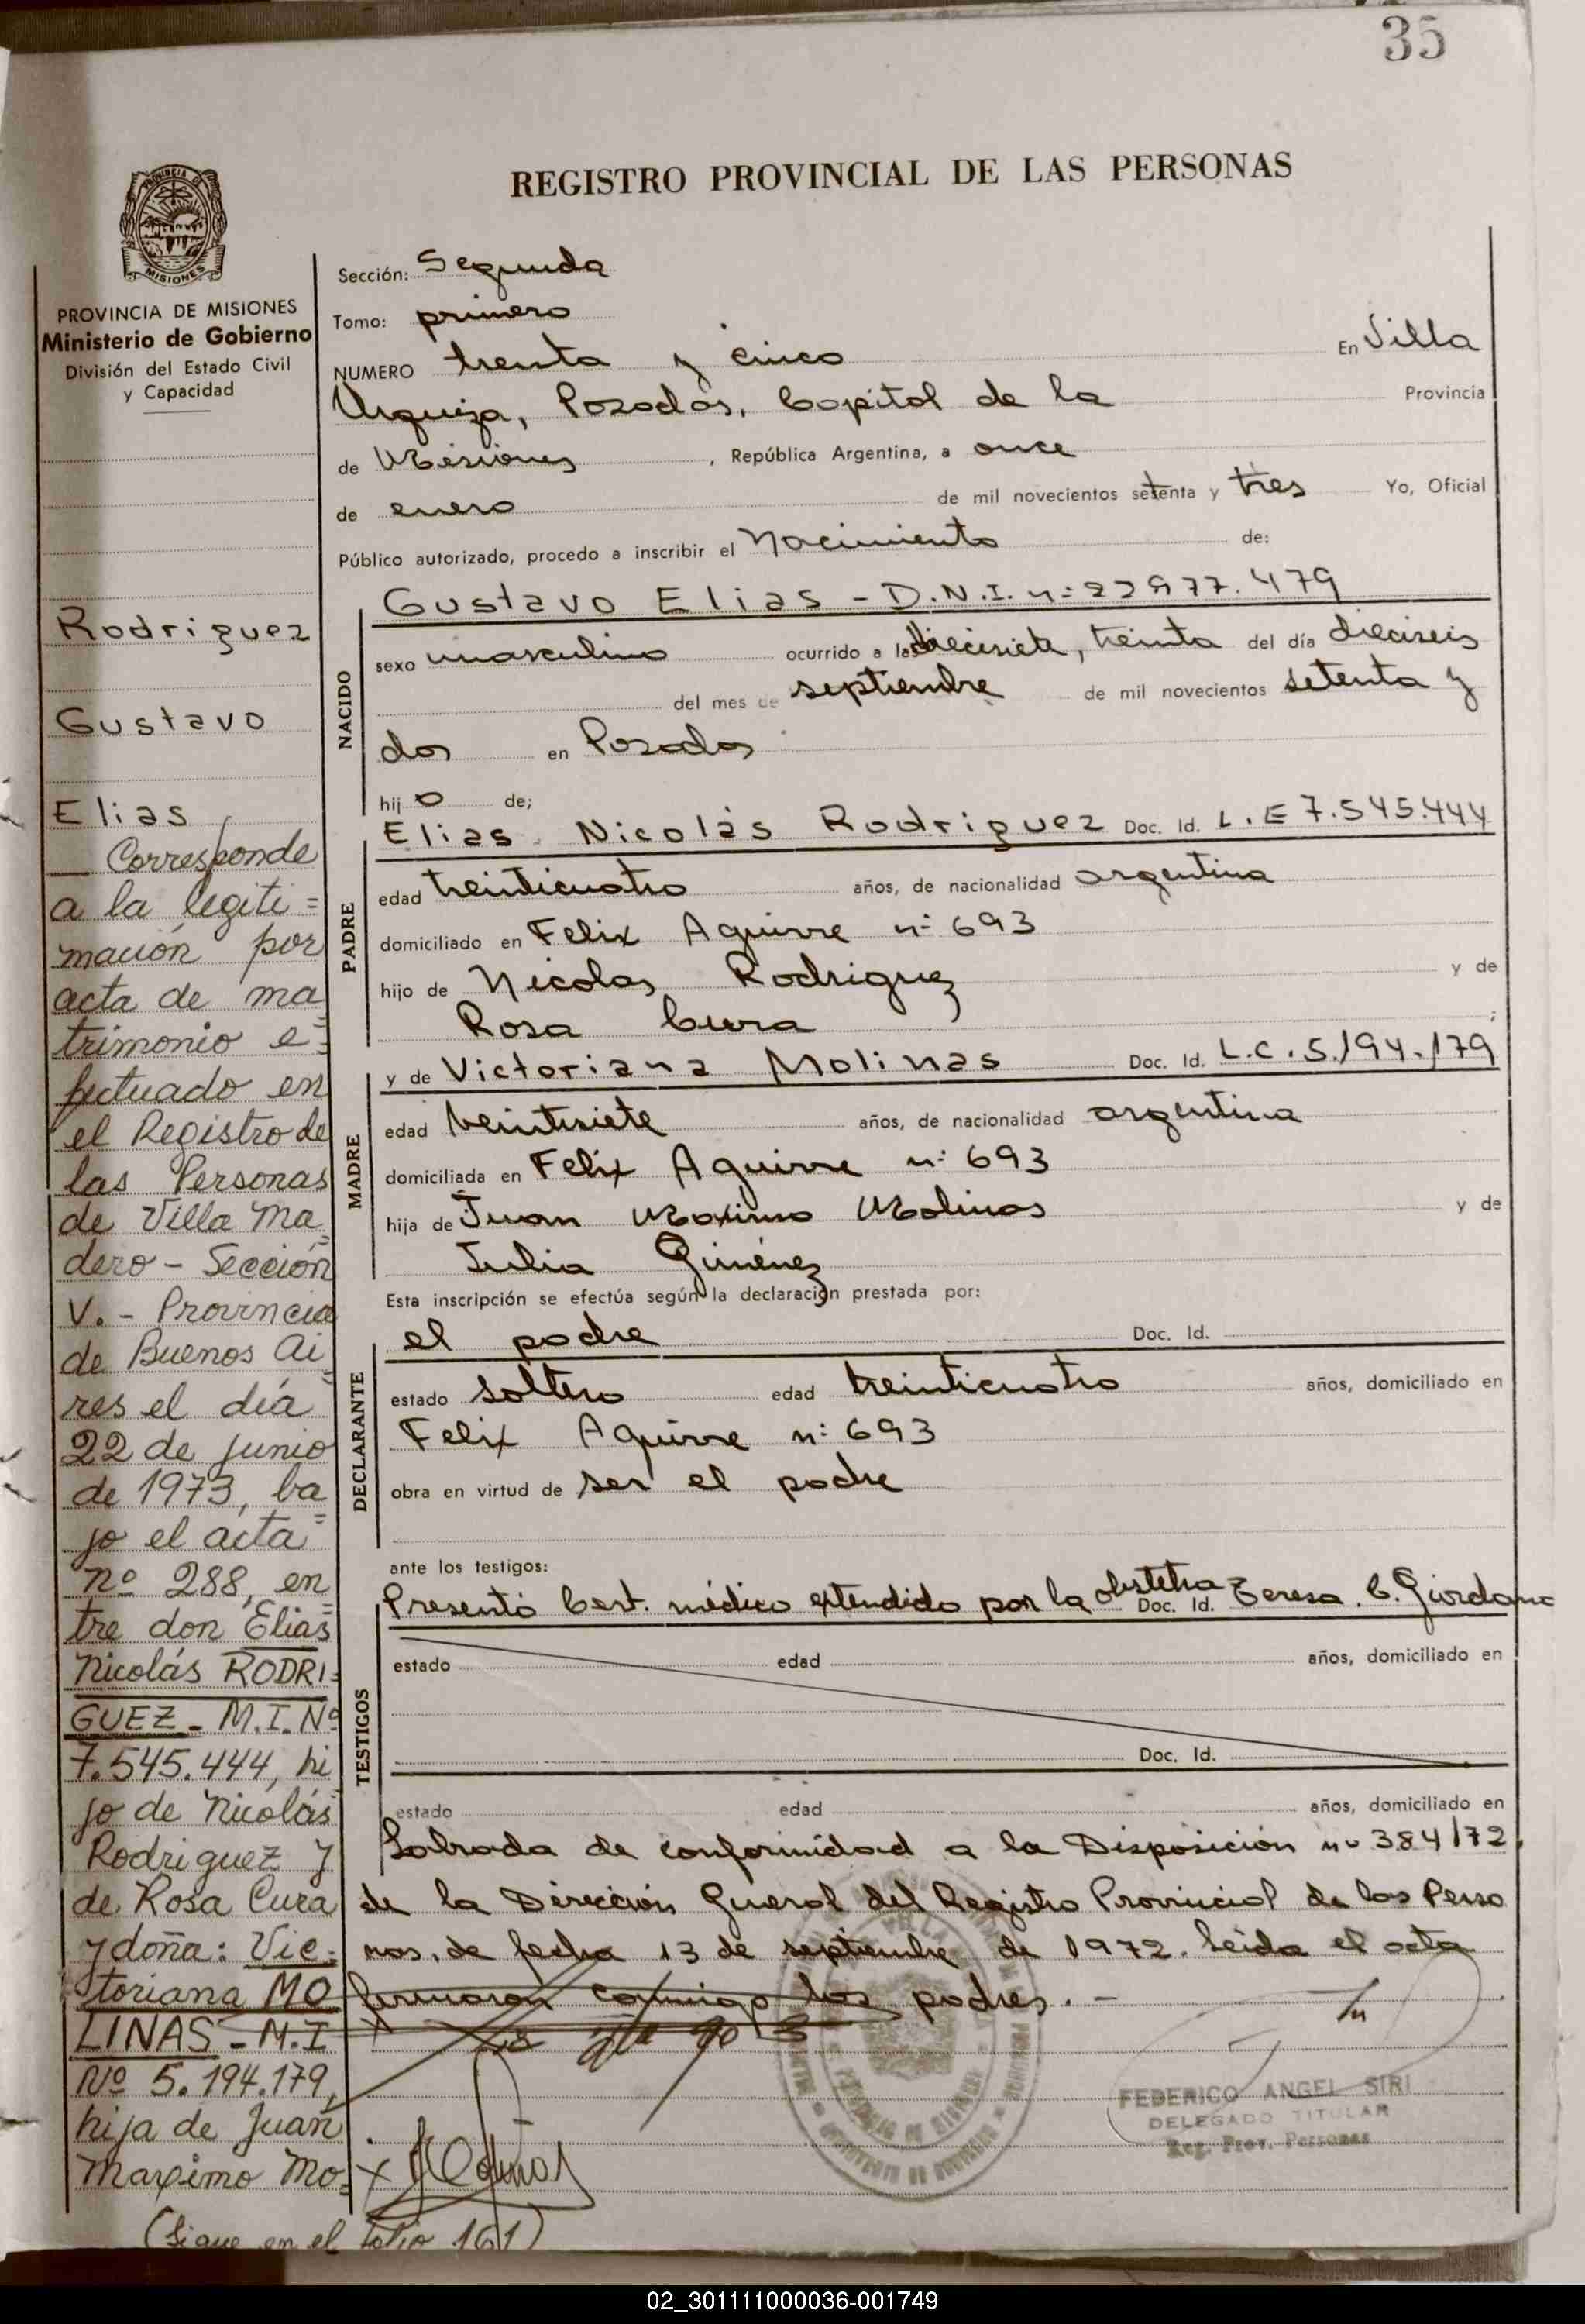 35
REGISTRO PROVINCIAL DE LAS PERSONAS
PROVINCIA DE MISIONES
Ministerio de Gobierno
División del Estado Civil
y Capacidad
Rodriguez
Gustavo
Elias
Corresponde
a la legiti=
mación por
acta de ma=
trimonio e=
fectuado en
el Registro de
las Personas
de Villa Ma=
dero - Sección
V. - Provincia
de Buenos Ai=
res el día
22 de junio
de 1973, ba=
jo el acta
nº 288, en=
tre don Elias
Nicolás RODRI=
GUEZ - M.I. Nº
7.545.444, hi=
jo de Nicolás
Rodriguez y
de Rosa Cura
y doña: Vic=
toriana MO
LINAS - M.I
Nº 5.194.179,
hija de Juan
Maximo Mo=
(Sigue en el folio 161)
Sección: Segunda
Tomo: primero
NUMERO trenta y cinco En Villa
Urquiza, Posadas, Capital de la Provincia
de Misiones, República Argentina, a once
de enero de mil novecientos setenta y tres Yo, Oficial
Público autorizado, procedo a inscribir el Nacimiento de:
NACIDO
Gustavo Elias - D.N.I. nº 22977.479
sexo masculino ocurrido a las diecisiete, treinta del día dieciseis
del mes de septiembre de mil novecientos setenta y
dos en Posadas
hijo de;
PADRE
Elias Nicolás Rodriguez Doc. Id. L.E 7.545.444
edad treinticuatro años, de nacionalidad argentina
domiciliado en Felix Aguirre nº 693
hijo de Nicolas Rodriguez y de
Rosa Cura ;
MADRE
y de Victoriana Molinas Doc. Id. L.C. 5.194.179
edad veintisiete años, de nacionalidad argentina
domiciliada en Felix Aguirre nº 693
hija de Juan Maximo Molinas y de
Julia Giménez
Esta inscripción se efectúa según la declaración prestada por:
DECLARANTE
el padre Doc. Id.
estado soltero edad treinticuatro años, domiciliado en
Felix Aguirre nº 693
obra en virtud de ser el padre
ante los testigos:
TESTIGOS
Presentó Cert. médico extendido por la obstetra Doc. Id. Teresa. C. Giordano
estado edad años, domiciliado en
Doc. Id.
estado edad años, domiciliado en
Labrada de conformidad a la Disposición nº 384/72,
de la Dirección General del Registro Provincial de las Perso
nas, de fecha 13 de septiembre de 1972. Leida el acta
firmaron conmigo los padres. -
VMolinas
FEDERICO ANGEL SIRI
DELEGADO TITULAR
Reg. Prov. Personas
02_301111000036-001749